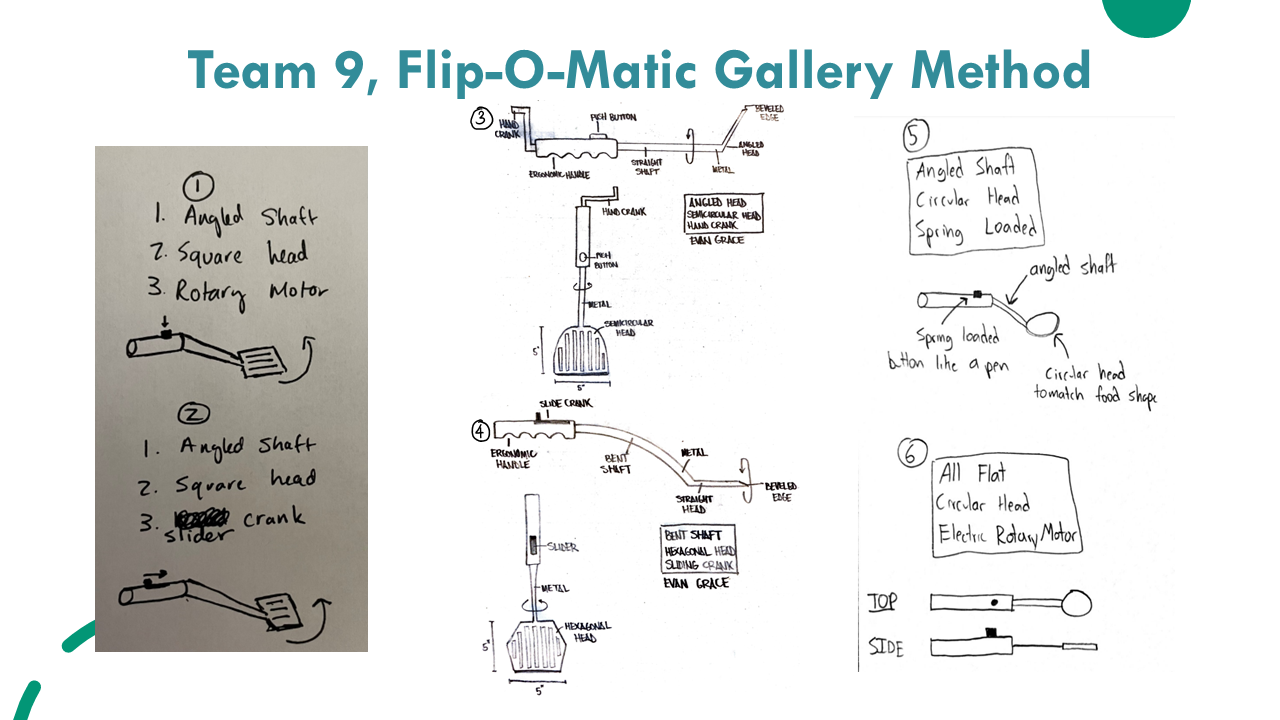 Team 9, Flip-O-Matic Gallery Method
1
1. Angled Shaft
2. Square head
3. Rotary Motor
2
1. Angled Shaft
2. Square head
3. crank
slider
3
HAND
CRANK
PUSH BUTTON
BEVELED
EDGE
ERGONOMIC HANDLE
STRAIGHT
SHAFT
METAL
ANGLED
HEAD
HAND CRANK
PUSH
BUTTON
METAL
SEMICIRCULAR
HEAD
5"
5"
ANGLED HEAD
SEMICIRCULAR HEAD
HAND CRANK
EVAN GRACE
4
SLIDE CRANK
ERGONOMIC
HANDLE
BENT
SHAFT
METAL
STRAIGHT
HEAD
BEVELED
EDGE
SLIDER
METAL
HEXAGONAL
HEAD
5"
5"
BENT SHAFT
HEXAGONAL HEAD
SLIDING CRANK
EVAN GRACE
5
Angled Shaft
Circular Head
Spring Loaded
angled shaft
Spring loaded
button like a pen
Circular head
to match food shape
6
All Flat
Circular Head
Electric Rotary Motor
TOP
SIDE